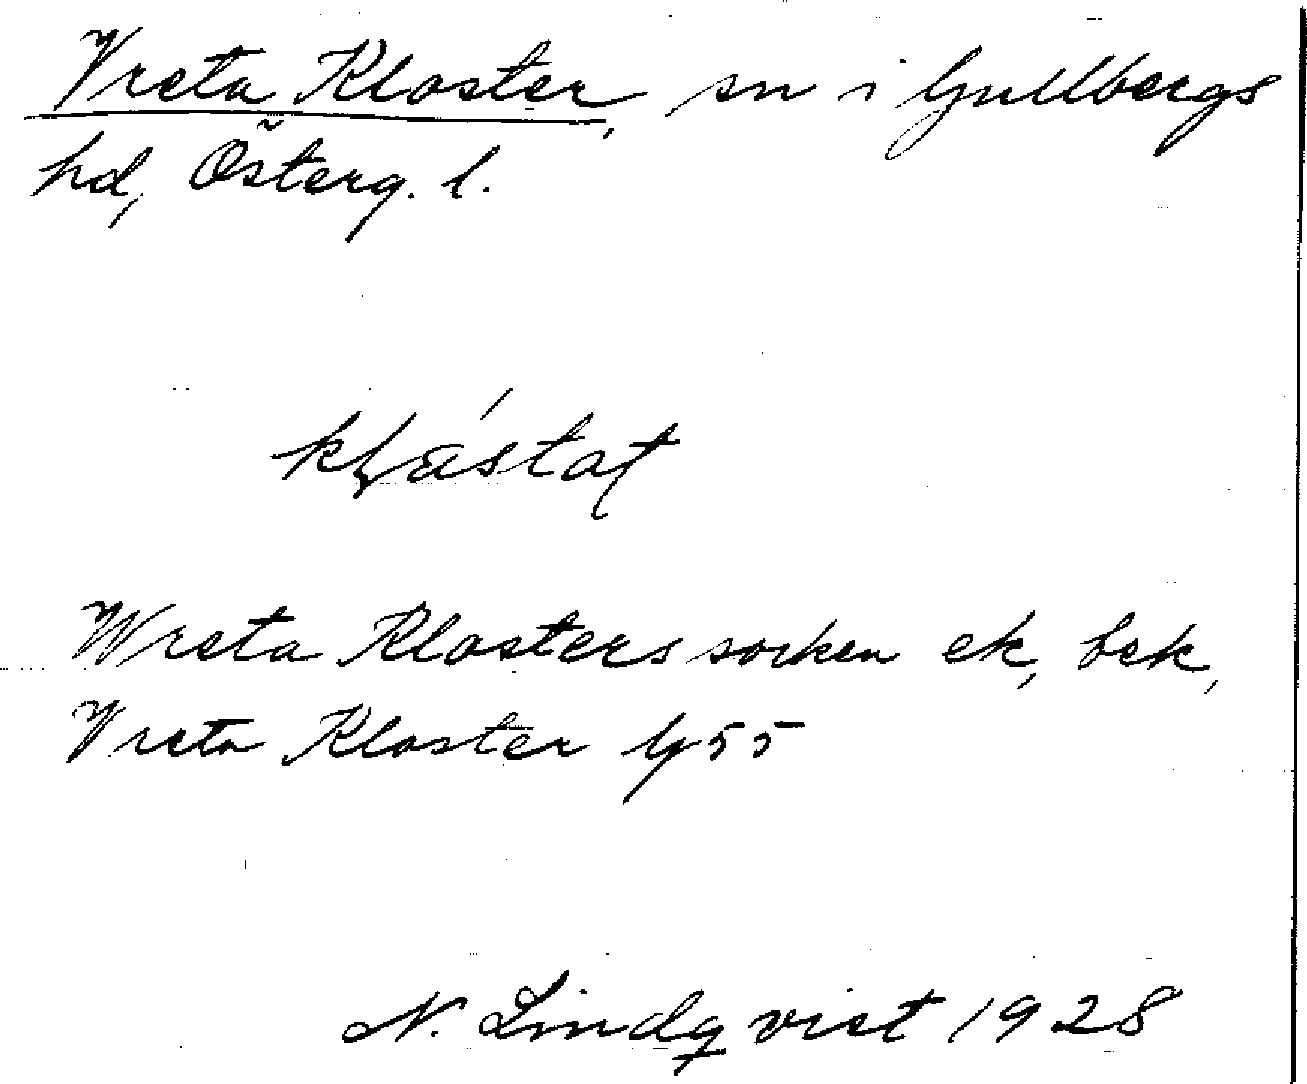 Vreta Kloster, sn i Gullbergs
hd, Österg. l.
klástat
Wreta Klosters socken ek, bek,
Vreta Kloster Gj 55
N. Lindqvist 1928